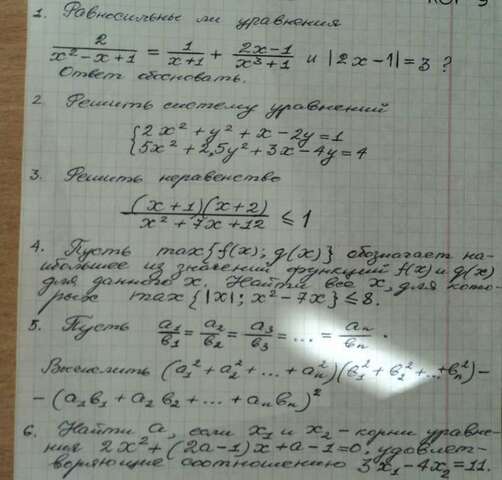 1. Равносильны ли уравнения
2/(x² - x + 1) = 1/(x + 1) + (2x - 1)/(x³ + 1) и |2x - 1| = 3 ?
Ответ обосновать.
2. Решить систему уравнений
{2x² + y² + x - 2y = 1
{5x² + 2,5y² + 3x - 4y = 4
3. Решить неравенство
(x + 1)(x + 2)/(x² + 7x + 12) ≤ 1
4. Пусть max{f(x); g(x)} обозначает на-
ибольшее из значений функций f(x) и g(x)
для данного x. Найти все x, для кото-
рых max{|x|; x² - 7x} ≤ 8.
5. Пусть a₁/b₁ = a₂/b₂ = a₃/b₃ = ... = aₙ/bₙ.
Вычислить (a₁² + a₂² + ... + aₙ²)(b₁² + b₂² + ... + bₙ²) -
- (a₁b₁ + a₂b₂ + ... + aₙbₙ)²
6. Найти a, если x₁ и x₂ - корни уравне-
ния 2x² + (2a - 1)x + a - 1 = 0, удовлет-
воряющие соотношению 3x₁ - 4x₂ = 11.